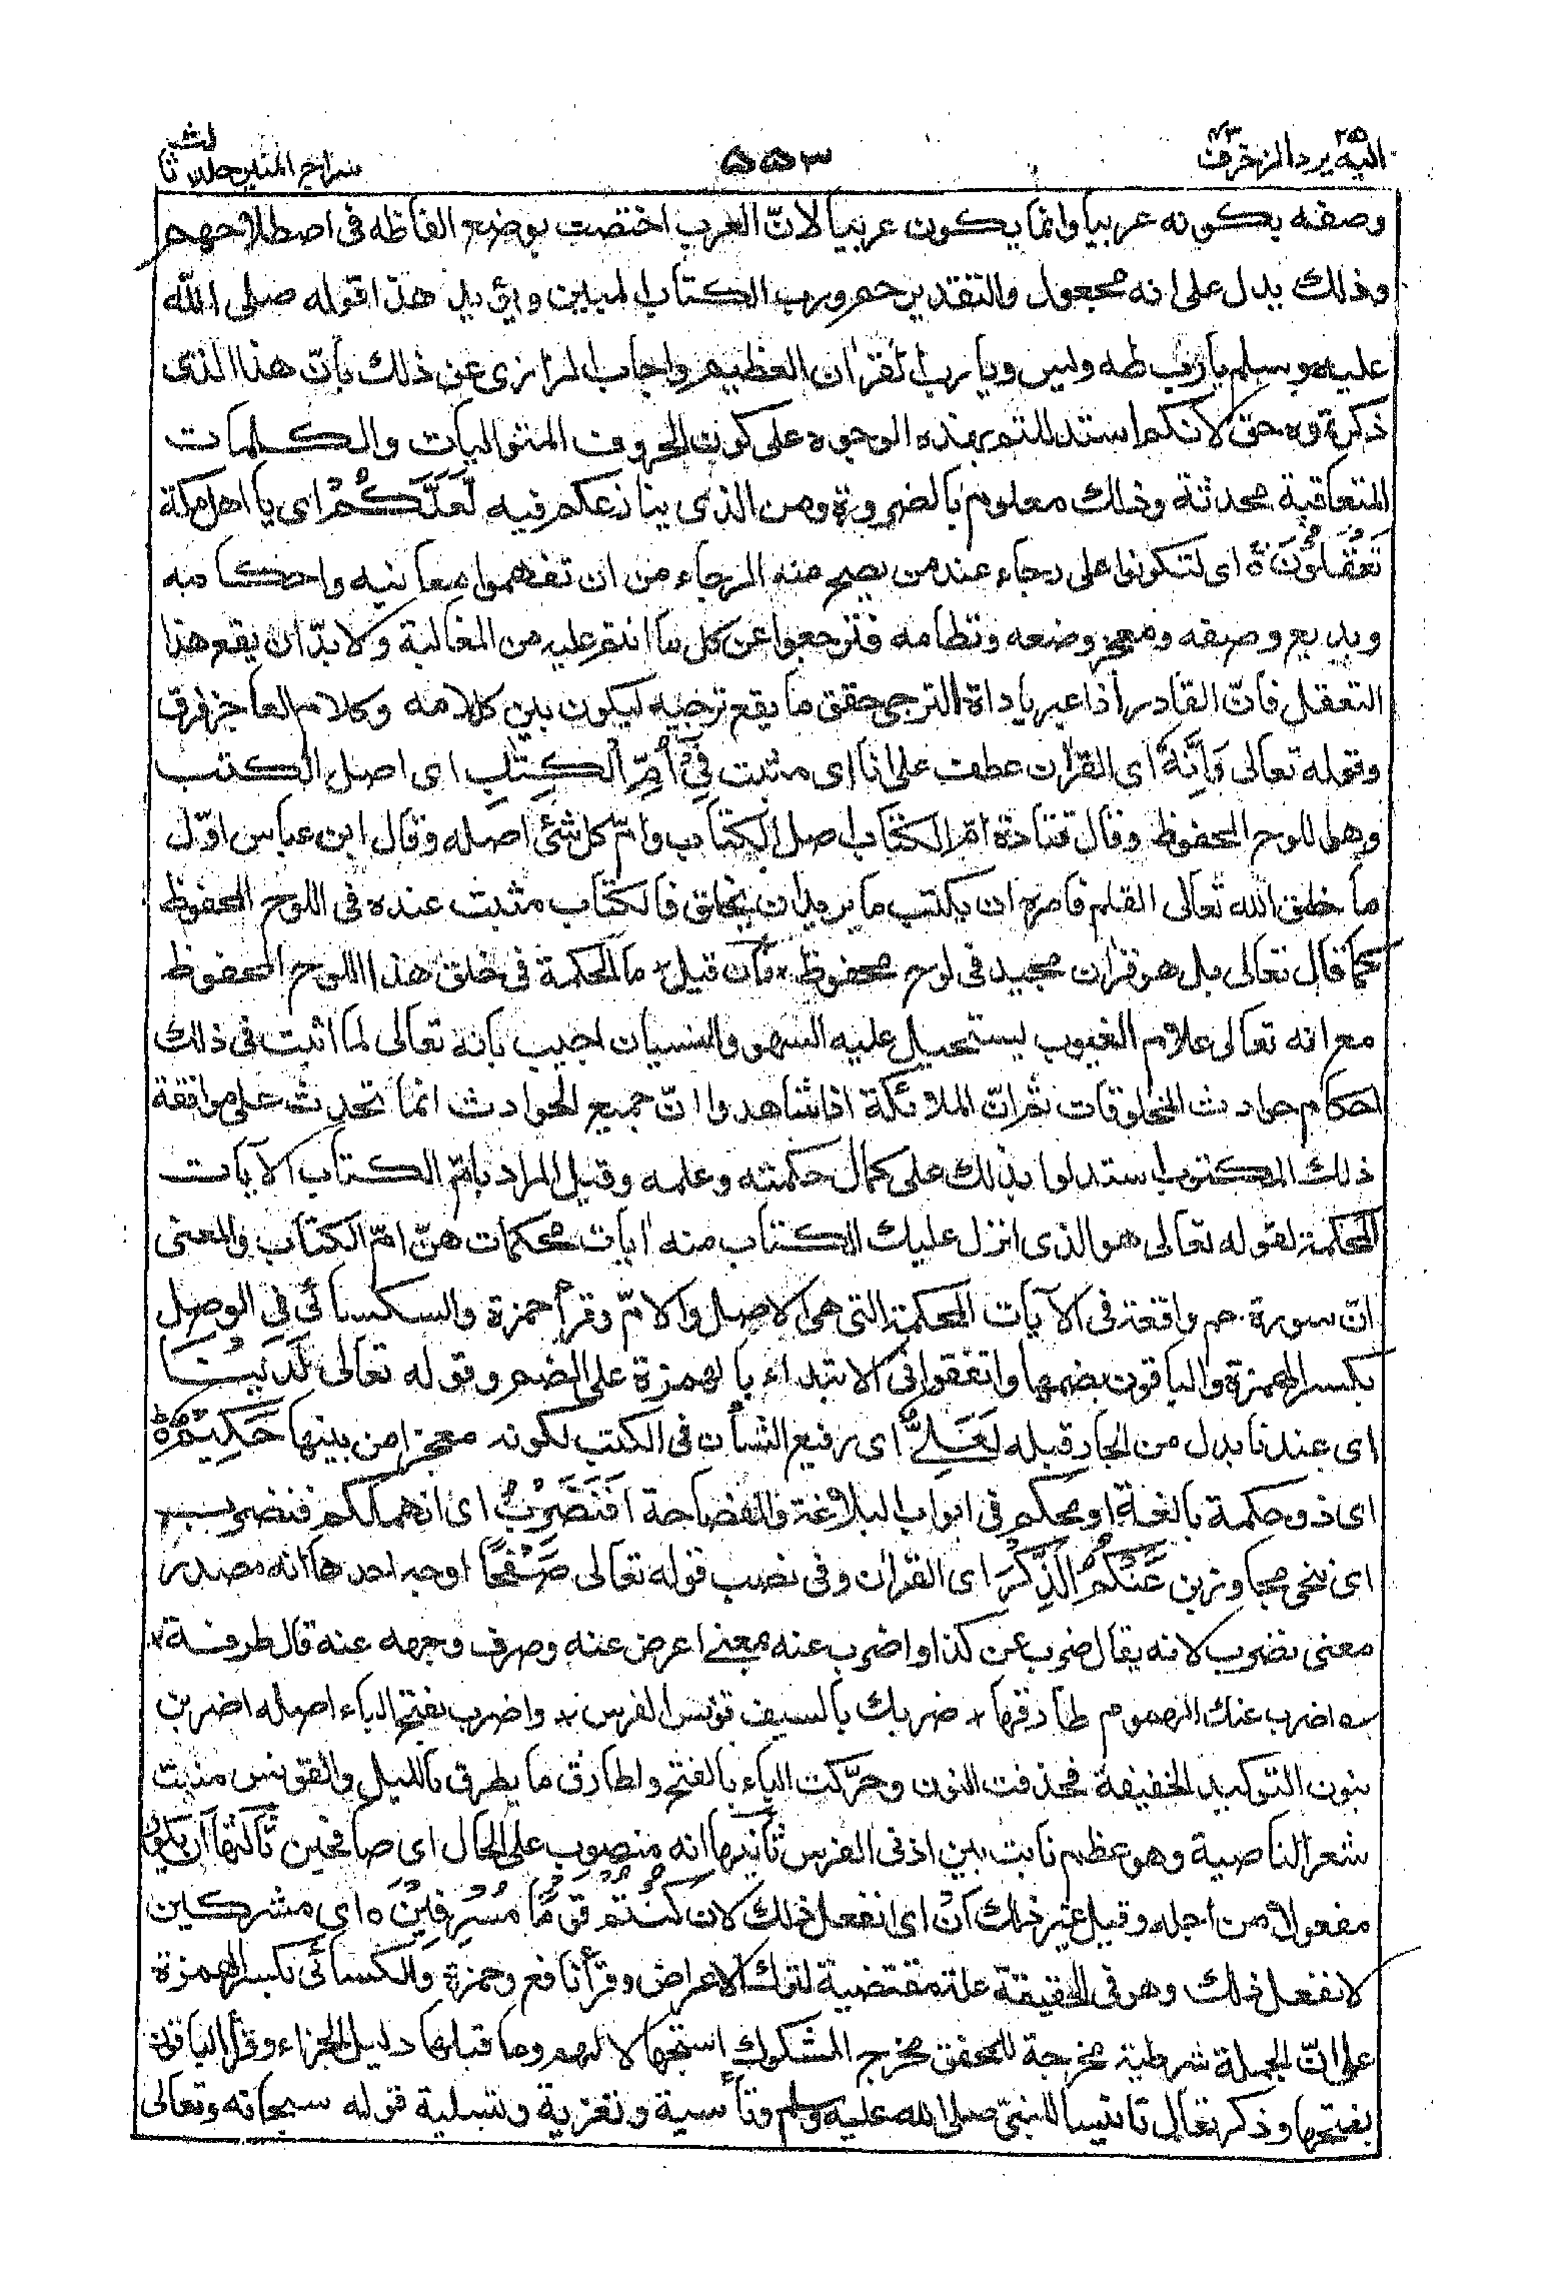 اليه يرد ٢٥ الزخرف ٤٣
٥٥٣
سراج المنير جلد ثالث
وصفته بكونه عربيا وانما يكون عربيا لانّ العرب اختصت بوضع الفاظه فى اصطلاحهم
وذلك يدل على انه مجعول والتقدير حم ورب الكتاب المبين ويؤيد هذا قوله صلى الله
عليه وسلم يا رب طه ويس ويا رب القراٰن العظيم واجاب الرازى عن ذلك بانّ هذا الذى
ذكرتموه حق لانكم استدللتم بهذه الوجوه على كون الحروف المتواليات والكلمات
المتعاقبة محدثة وذلك معلوم بالضرورة ومن الذى ينازعكم فيه لَعَلَّكُمْ اى يا اهل مكة
تَعْقِلُوْنَ ۚ اى لتكونوا على رجاء عند من يصح منه الرجاء من ان تفهموا معانيه واحكامه
وبديع وصفه ومعجز وضعه ونظامه فترجعوا عن كل ما انتم عليه من المغالبة ولا بدّ ان يقع هذا
التعقل فانّ القادر اذا عبر باداة الترجى حقق ما يقع ترجيه ليكون بين كلامه وكلام العاجز فرق
وقوله تعالى وَاِنَّهٗ اى القراٰن عطف على انا اى مثبت فِيْٓ اُمِّ الْكِتٰبِ اى اصل الكتب
وهو اللوح المحفوظ وقال قتادة امّ الكتاب اصل الكتاب وامّ كل شئ اصله وقال ابن عباس اوّل
ما خلق الله تعالى القلم فامره ان يكتب ما يريد ان يخلق فالكتاب مثبت عنده فى اللوح المحفوظ
كما قال تعالى بل هو قراٰن مجيد فى لوح محفوظ * فان قيل * ما الحكمة فى خلق هذا اللوح المحفوظ
مع انه تعالى علام الغيوب يستحيل عليه السهو والنسيان اجيب بانه تعالى لما اثبت فى ذلك
احكام حوادث المخلوقات ثم انّ الملائكة اذا شاهدوا انّ جميع الحوادث انما تحدث على موافقة
ذلك المكتوب استدلوا بذلك على كمال حكمته وعلمه وقيل المراد بامّ الكتاب الآيات
المحكمة لقوله تعالى هو الذى انزل عليك الكتاب منه اٰيات محكمات هنّ امّ الكتاب والمعنى
انّ سورة حم واقعة فى الآيات المحكمة التى هى الاصل والامّ وقرأ حمزة والكسائى فى الوصل
بكسر الهمزة والباقون بضمها واتفقوا فى الابتداء بالهمزة على الضم وقوله تعالى لَدَيْنَا
اى عندنا بدل من الجار قبله لَعَلِيٌّ اى رفيع الشأن فى الكتب لكونه معجزا من بينها حَكِيْمٌ ؕ
اى ذو حكمة بالغة او محكم فى ابواب البلاغة والفصاحة اَفَنَضْرِبُ اى انهملكم فنضرب
اى ننحى مجاوزين عَنْكُمُ الذِّكْرَ اى القراٰن وفى نصب قوله تعالى صَفْحًا اوجه احدها انه مصدر
معنى نضرب لانه يقال ضرب عن كذا واضرب عنه بمعنى اعرض عنه وصرف وجهه عنه قال طرفة *
اضرب عنك الهموم طارقها * ضربك بالسيف قونس الفرس * واضرب بفتح الباء اصله اضربن
بنون التوكيد الخفيفة فحذفت النون وحرّكت الباء بالفتح والطارق ما يطرق بالليل والقونس منبت
شعر الناصية وهو عظم نابت بين اذنى الفرس ثانيها انه منصوب على الحال اى صافحين ثالثها ان يكون
مفعولا من اجله وقيل غير ذلك اَنْ اى انفعل ذلك لان كُنْتُمْ قَوْمًا مُّسْرِفِيْنَ ۝ اى مشركين
لا نفعل ذلك وهو فى الحقيقة علة مقتضية لترك الاعراض وقرأ نافع وحمزة والكسائى بكسر الهمزة
على انّ الجملة شرطية مخرجة للمحقق مخرج المشكوك استجهالا لهم وما قبلها دليل الجزاء وقرأ الباقون
بفتحها وذكر تعالى تانيسا للنبىّ صلى الله عليه وسلم وتأسية وتعزية وتسلية قوله سبحانه وتعالى